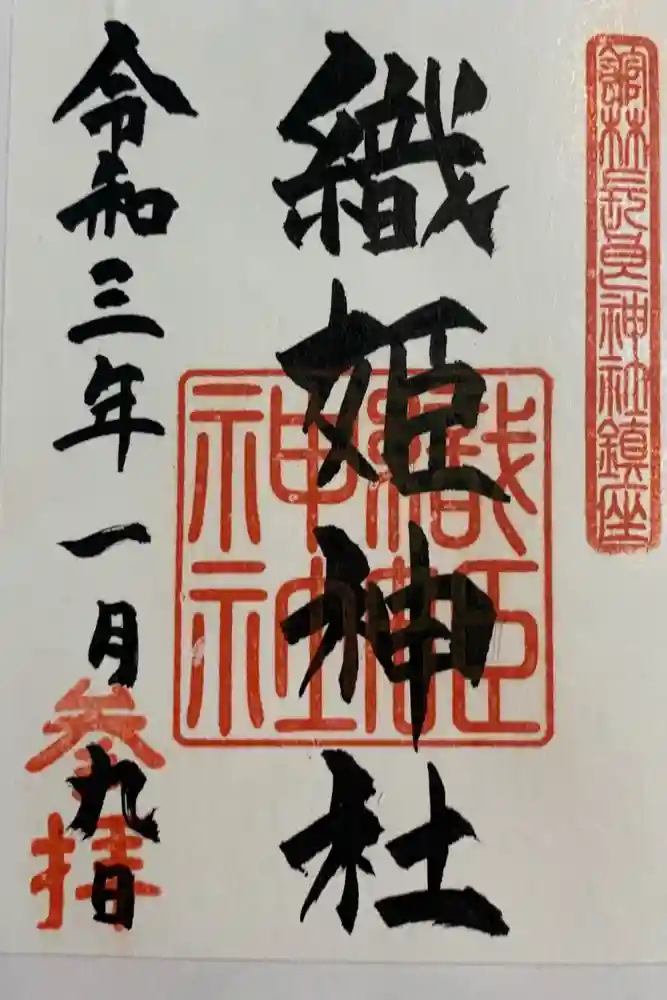 館林長良神社鎮座
織姫神社
織姫
神社
令和三年一月九日
参拝